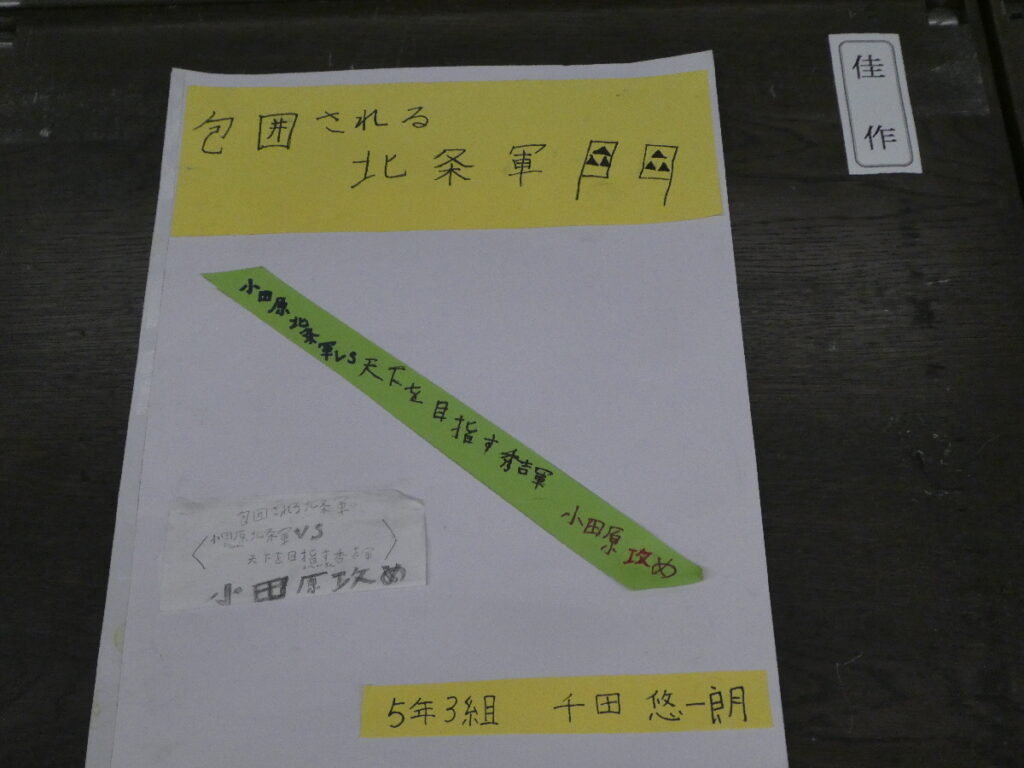 佳作
包囲される
北条軍
小田原北条軍VS天下を目指す秀吉軍
小田原攻め
包囲される北条軍
〈小田原北条軍VS
天下を目指す秀吉軍〉
小田原攻め
5年3組 千田 悠一朗